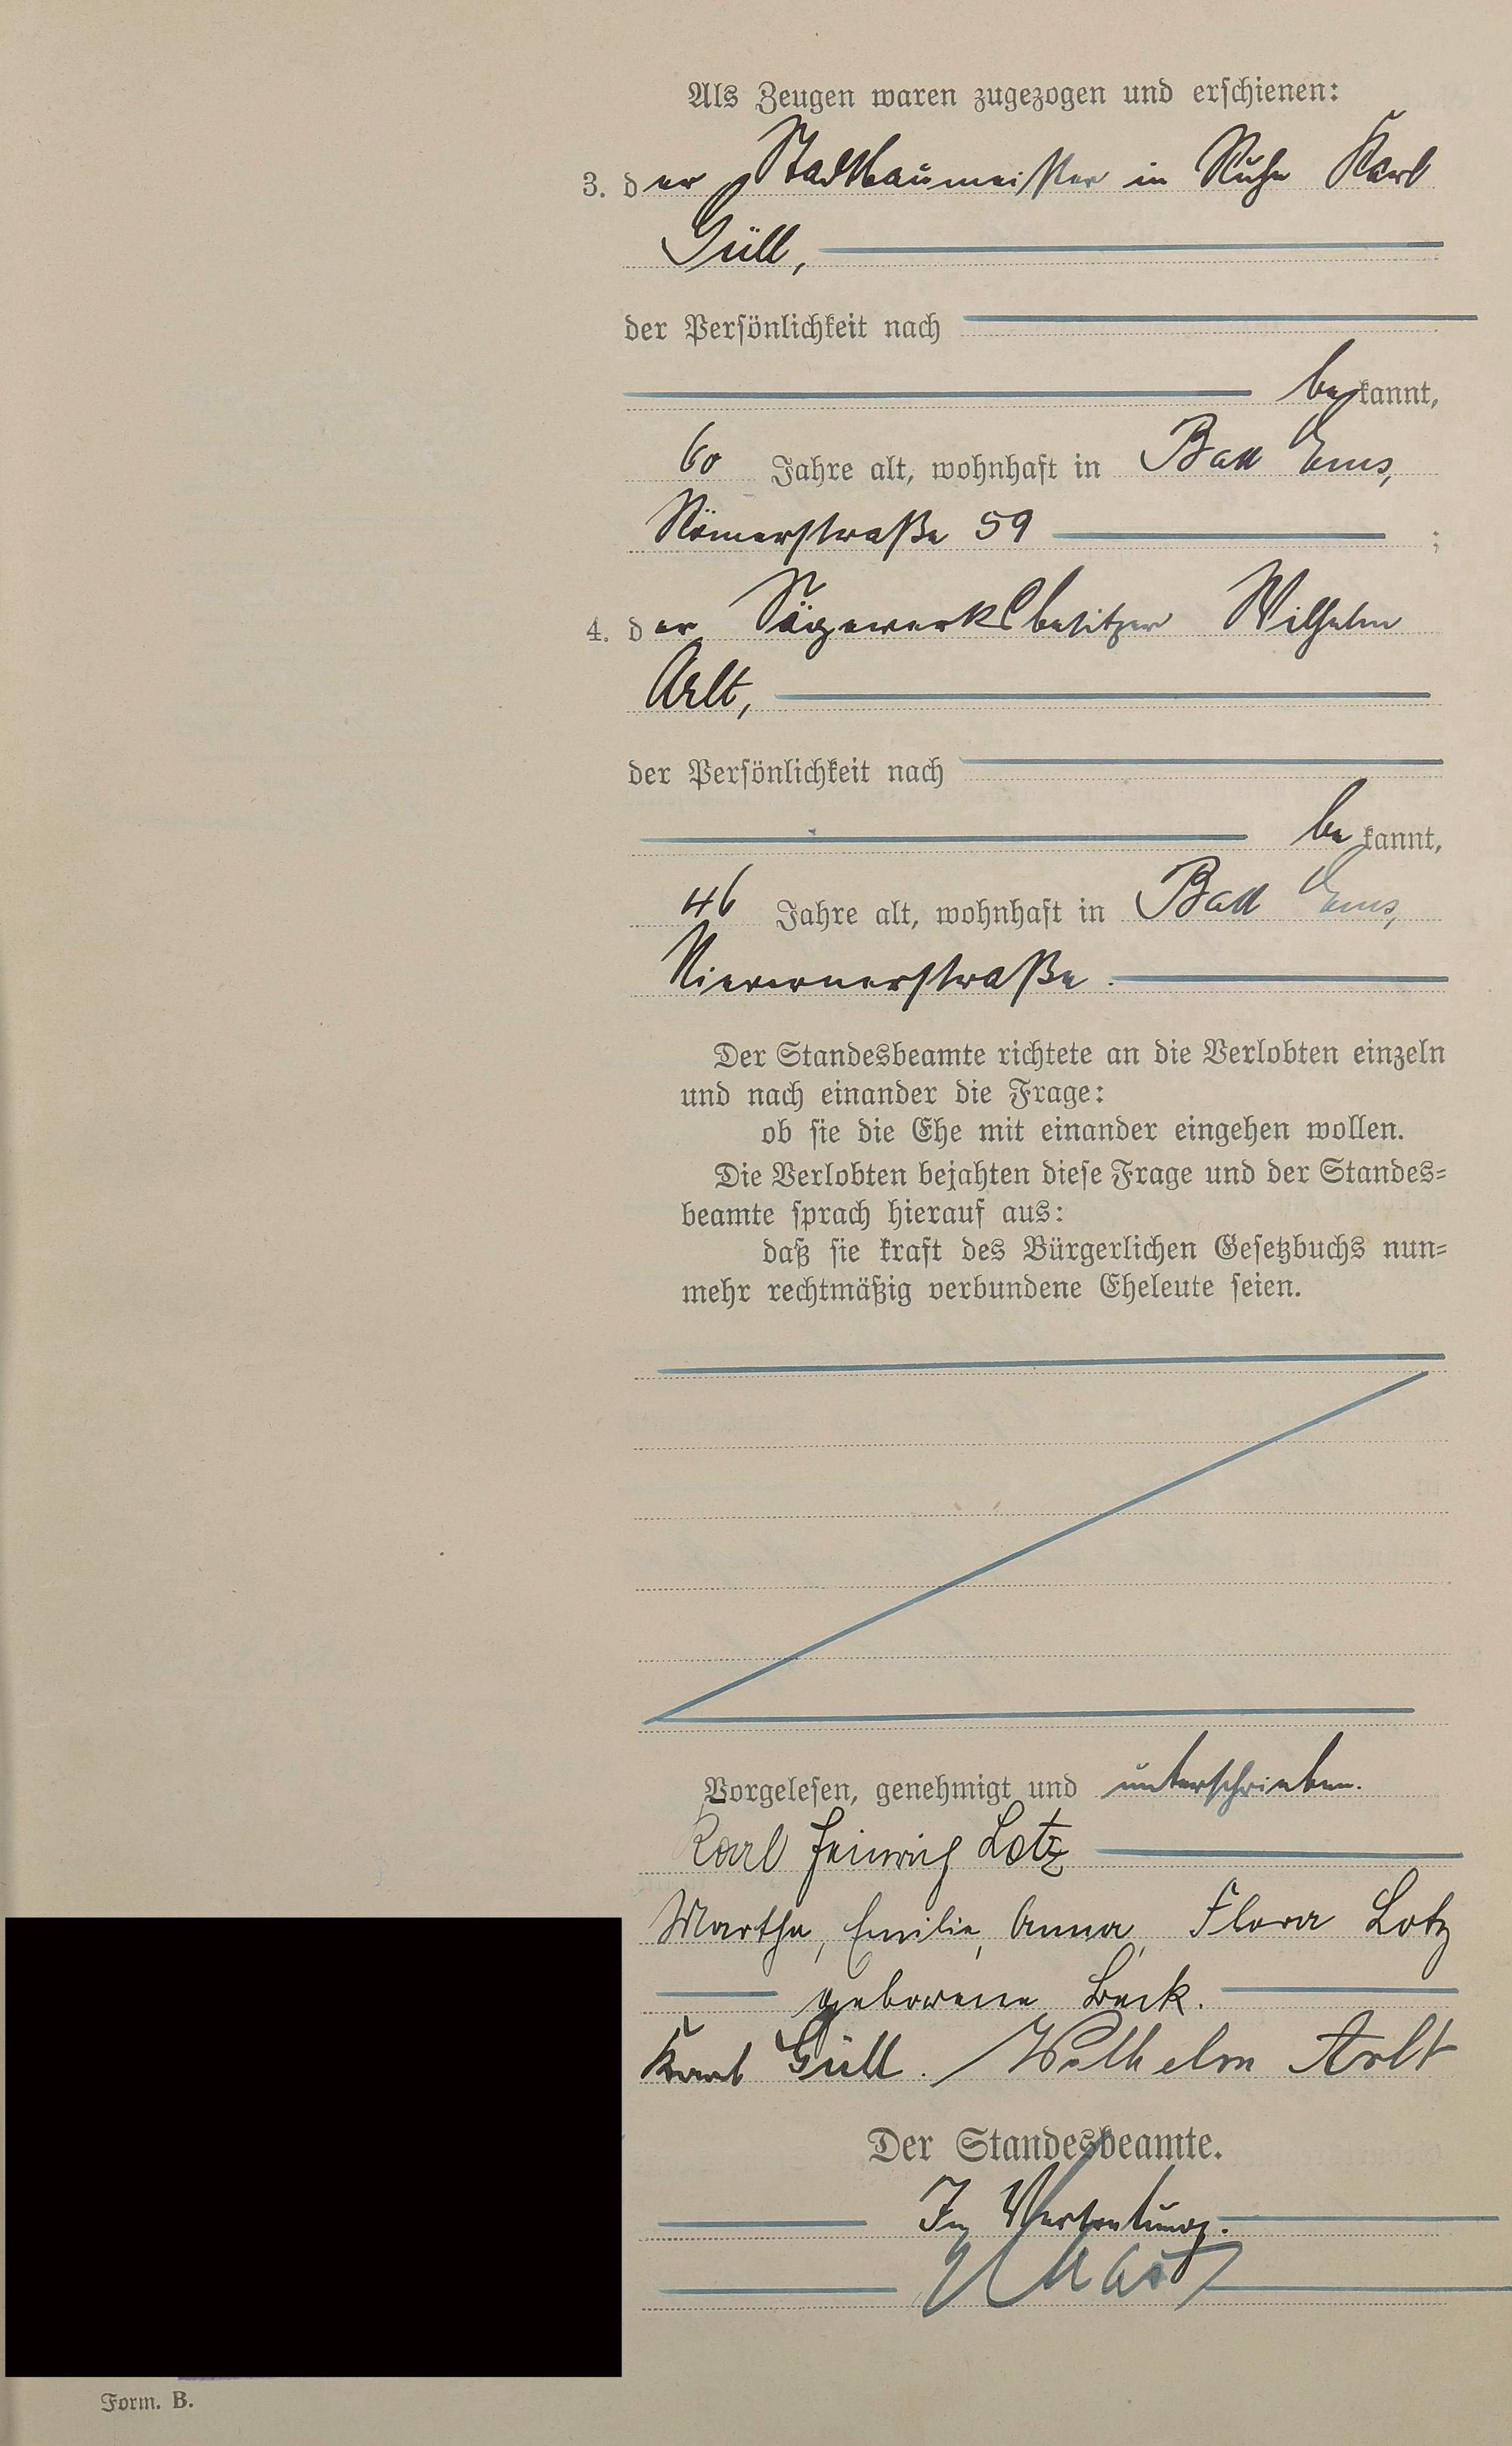 Als Zeugen waren zugezogen und erschienen:
3. der Stadtbaumeister in Ruhe Karl
Güll,
der Persönlichkeit nach
bekannt,
60 Jahre alt, wohnhaft in Bad Ems,
Römerstraße 59 ;
4. der Sägewerksbesitzer Wilhelm
Arlt,
der Persönlichkeit nach
bekannt,
46 Jahre alt, wohnhaft in Bad Ems,
Nievernerstraße.
Der Standesbeamte richtete an die Verlobten einzeln
und nach einander die Frage:
ob sie die Ehe mit einander eingehen wollen.
Die Verlobten bejahten diese Frage und der Standes-
beamte sprach hierauf aus:
daß sie kraft des Bürgerlichen Gesetzbuchs nun-
mehr rechtmäßig verbundene Eheleute seien.
Vorgelesen, genehmigt und unterschrieben.
Karl Heinrich Lotz
Martha, Emilie, Anna, Flora Lotz
geborene Beck.
Karl Güll. Wilhelm Arlt
Der Standesbeamte.
In Vertretung.
Form. B.